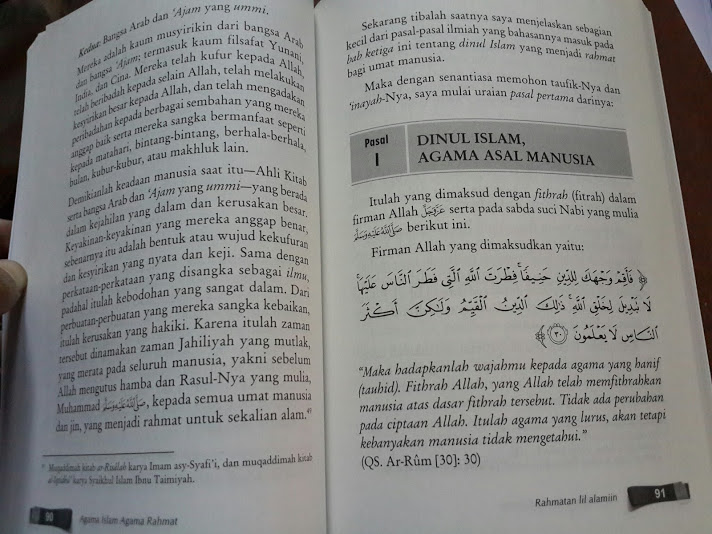 Kedua: Bangsa Arab dan ‘Ajam yang ummi.
Mereka adalah kaum musyirikin dari bangsa Arab
dan bangsa ‘Ajam; termasuk kaum filsafat Yunani,
India, dan Cina. Mereka telah kufur kepada Allah,
telah beribadah kepada selain Allah, telah melakukan
kesyirikan besar kepada Allah, dan telah mengadakan
peribadahan kepada berbagai sembahan yang mereka
anggap baik serta mereka sangka bermanfaat seperti
kepada matahari, bintang-bintang, berhala-berhala,
bulan, kubur-kubur, atau makhluk lain.
Demikianlah keadaan manusia saat itu—Ahli Kitab
serta bangsa Arab dan ‘Ajam yang ummi—yang berada
dalam kejahilan yang dalam dan kerusakan besar.
Keyakinan-keyakinan yang mereka anggap benar,
sebenarnya itu adalah bentuk atau wujud kekufuran
dan kesyirikan yang nyata dan keji. Sama dengan
perkataan-perkataan yang disangka sebagai ilmu,
padahal itulah kebodohan yang sangat dalam. Dari
perbuatan-perbuatan yang mereka sangka kebaikan,
itulah kerusakan yang hakiki. Karena itulah zaman
tersebut dinamakan zaman Jahiliyah yang mutlak,
yang merata pada seluruh manusia, yakni sebelum
Allah mengutus hamba dan Rasul-Nya yang mulia,
Muhammad ﷺ, kepada semua umat manusia
dan jin, yang menjadi rahmat untuk sekalian alam.⁴⁹
Muqaddimah kitab ar-Risâlah karya Imam asy-Syafi’i, dan muqaddimah kitab
karya Syaikhul Islam Ibnu Taimiyah.
90 Agama Islam Agama Rahmat
Sekarang tibalah saatnya saya menjelaskan sebagian
kecil dari pasal-pasal ilmiah yang bahasannya masuk pada
bab ketiga ini tentang dinul Islam yang menjadi rahmat
bagi umat manusia.
Maka dengan senantiasa memohon taufik-Nya dan
‘inayah-Nya, saya mulai uraian pasal pertama darinya:
Pasal
I
DINUL ISLAM,
AGAMA ASAL MANUSIA
Itulah yang dimaksud dengan fithrah (fitrah) dalam
firman Allah عَزَّوَجَلَّ serta pada sabda suci Nabi yang mulia
ﷺ berikut ini.
Firman Allah yang dimaksudkan yaitu:
﴿ فَأَقِمْ وَجْهَكَ لِلدِّينِ حَنِيفًا ۚ فِطْرَتَ ٱللَّهِ ٱلَّتِي فَطَرَ ٱلنَّاسَ عَلَيْهَا ۚ
لَا تَبْدِيلَ لِخَلْقِ ٱللَّهِ ۚ ذَٰلِكَ ٱلدِّينُ ٱلْقَيِّمُ وَلَٰكِنَّ أَكْثَرَ
ٱلنَّاسِ لَا يَعْلَمُونَ ٣٠ ﴾
“Maka hadapkanlah wajahmu kepada agama yang hanif
(tauhid). Fithrah Allah, yang Allah telah memfithrahkan
manusia atas dasar fithrah tersebut. Tidak ada perubahan
pada ciptaan Allah. Itulah agama yang lurus, akan tetapi
kebanyakan manusia tidak mengetahui.”
(QS. Ar-Rûm [30]: 30)
Rahmatan lil alamiin 91